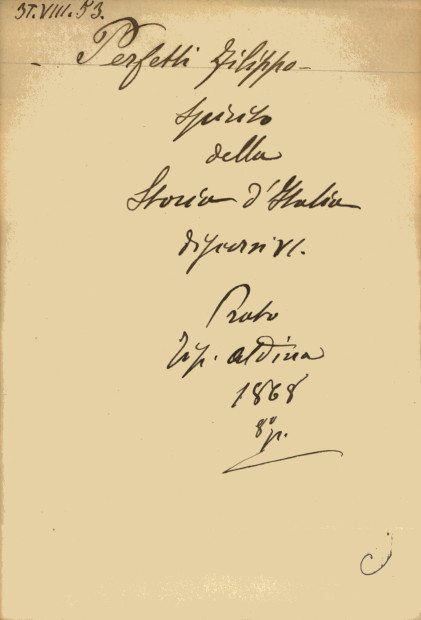 37.VIII.53.
Perfetti Filippo-
Spirito
della
Storia d'Italia
discorsi VI.
Prato
Tip. aldina
1868
8º p.